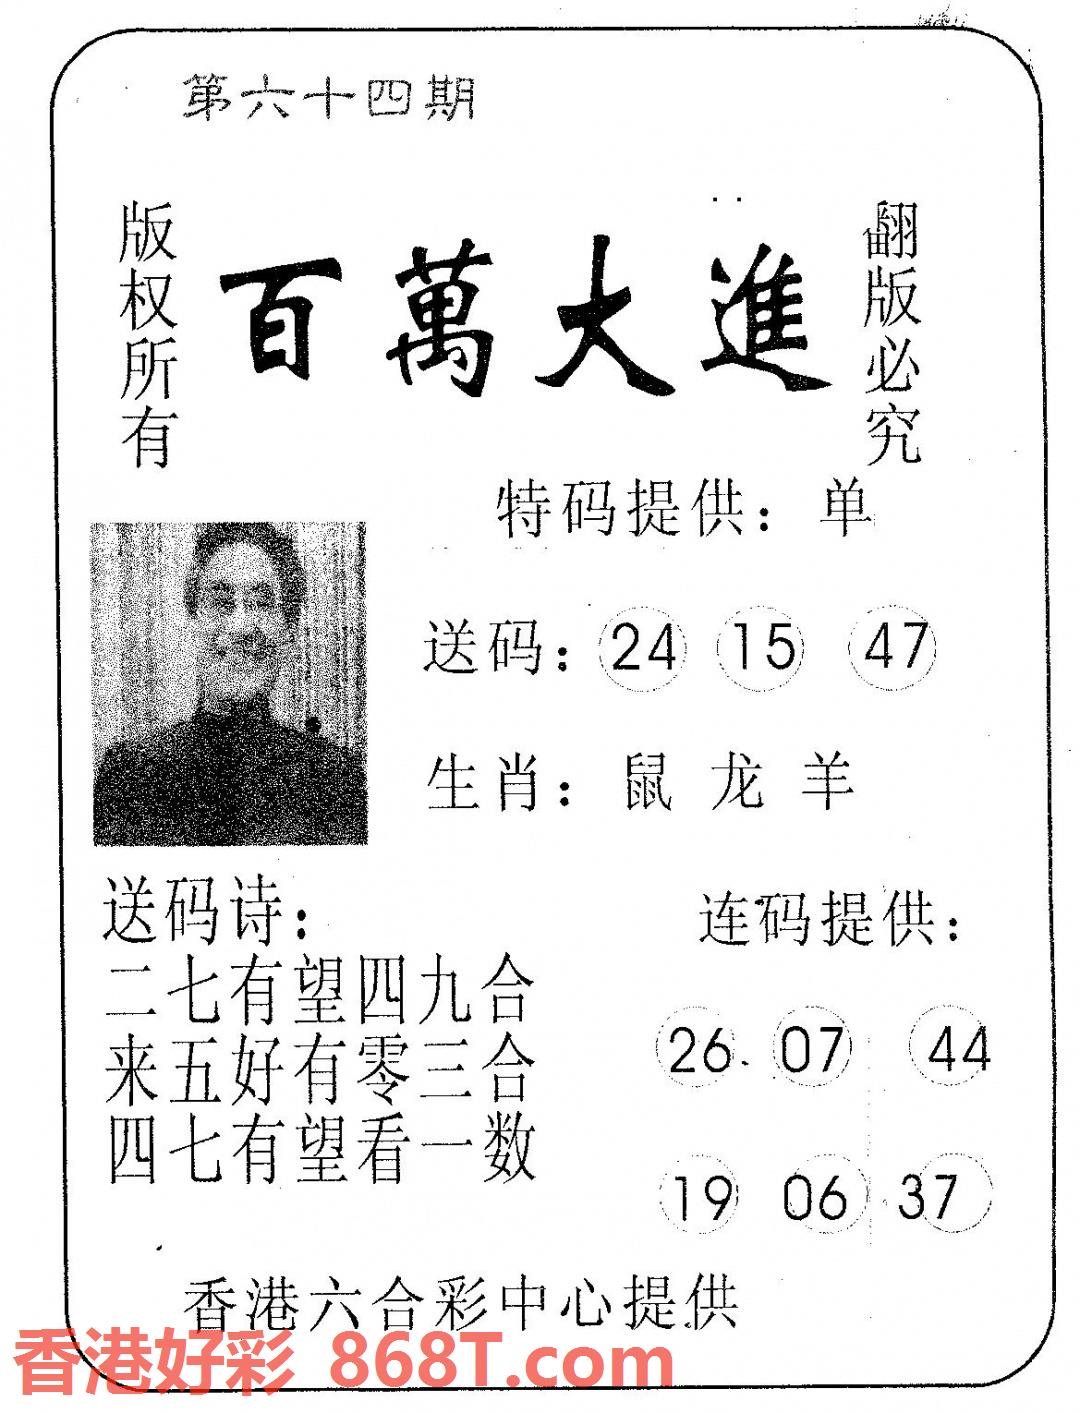 第六十四期
版权所有
百萬大進
翻版必究
特码提供：单
送码：24 15 47
生肖：鼠 龙 羊
送码诗：
二七有望四九合
来五好有零三合
四七有望看一数
连码提供：
26 07 44
19 06 37
香港六合彩中心提供
香港好彩 868T.com